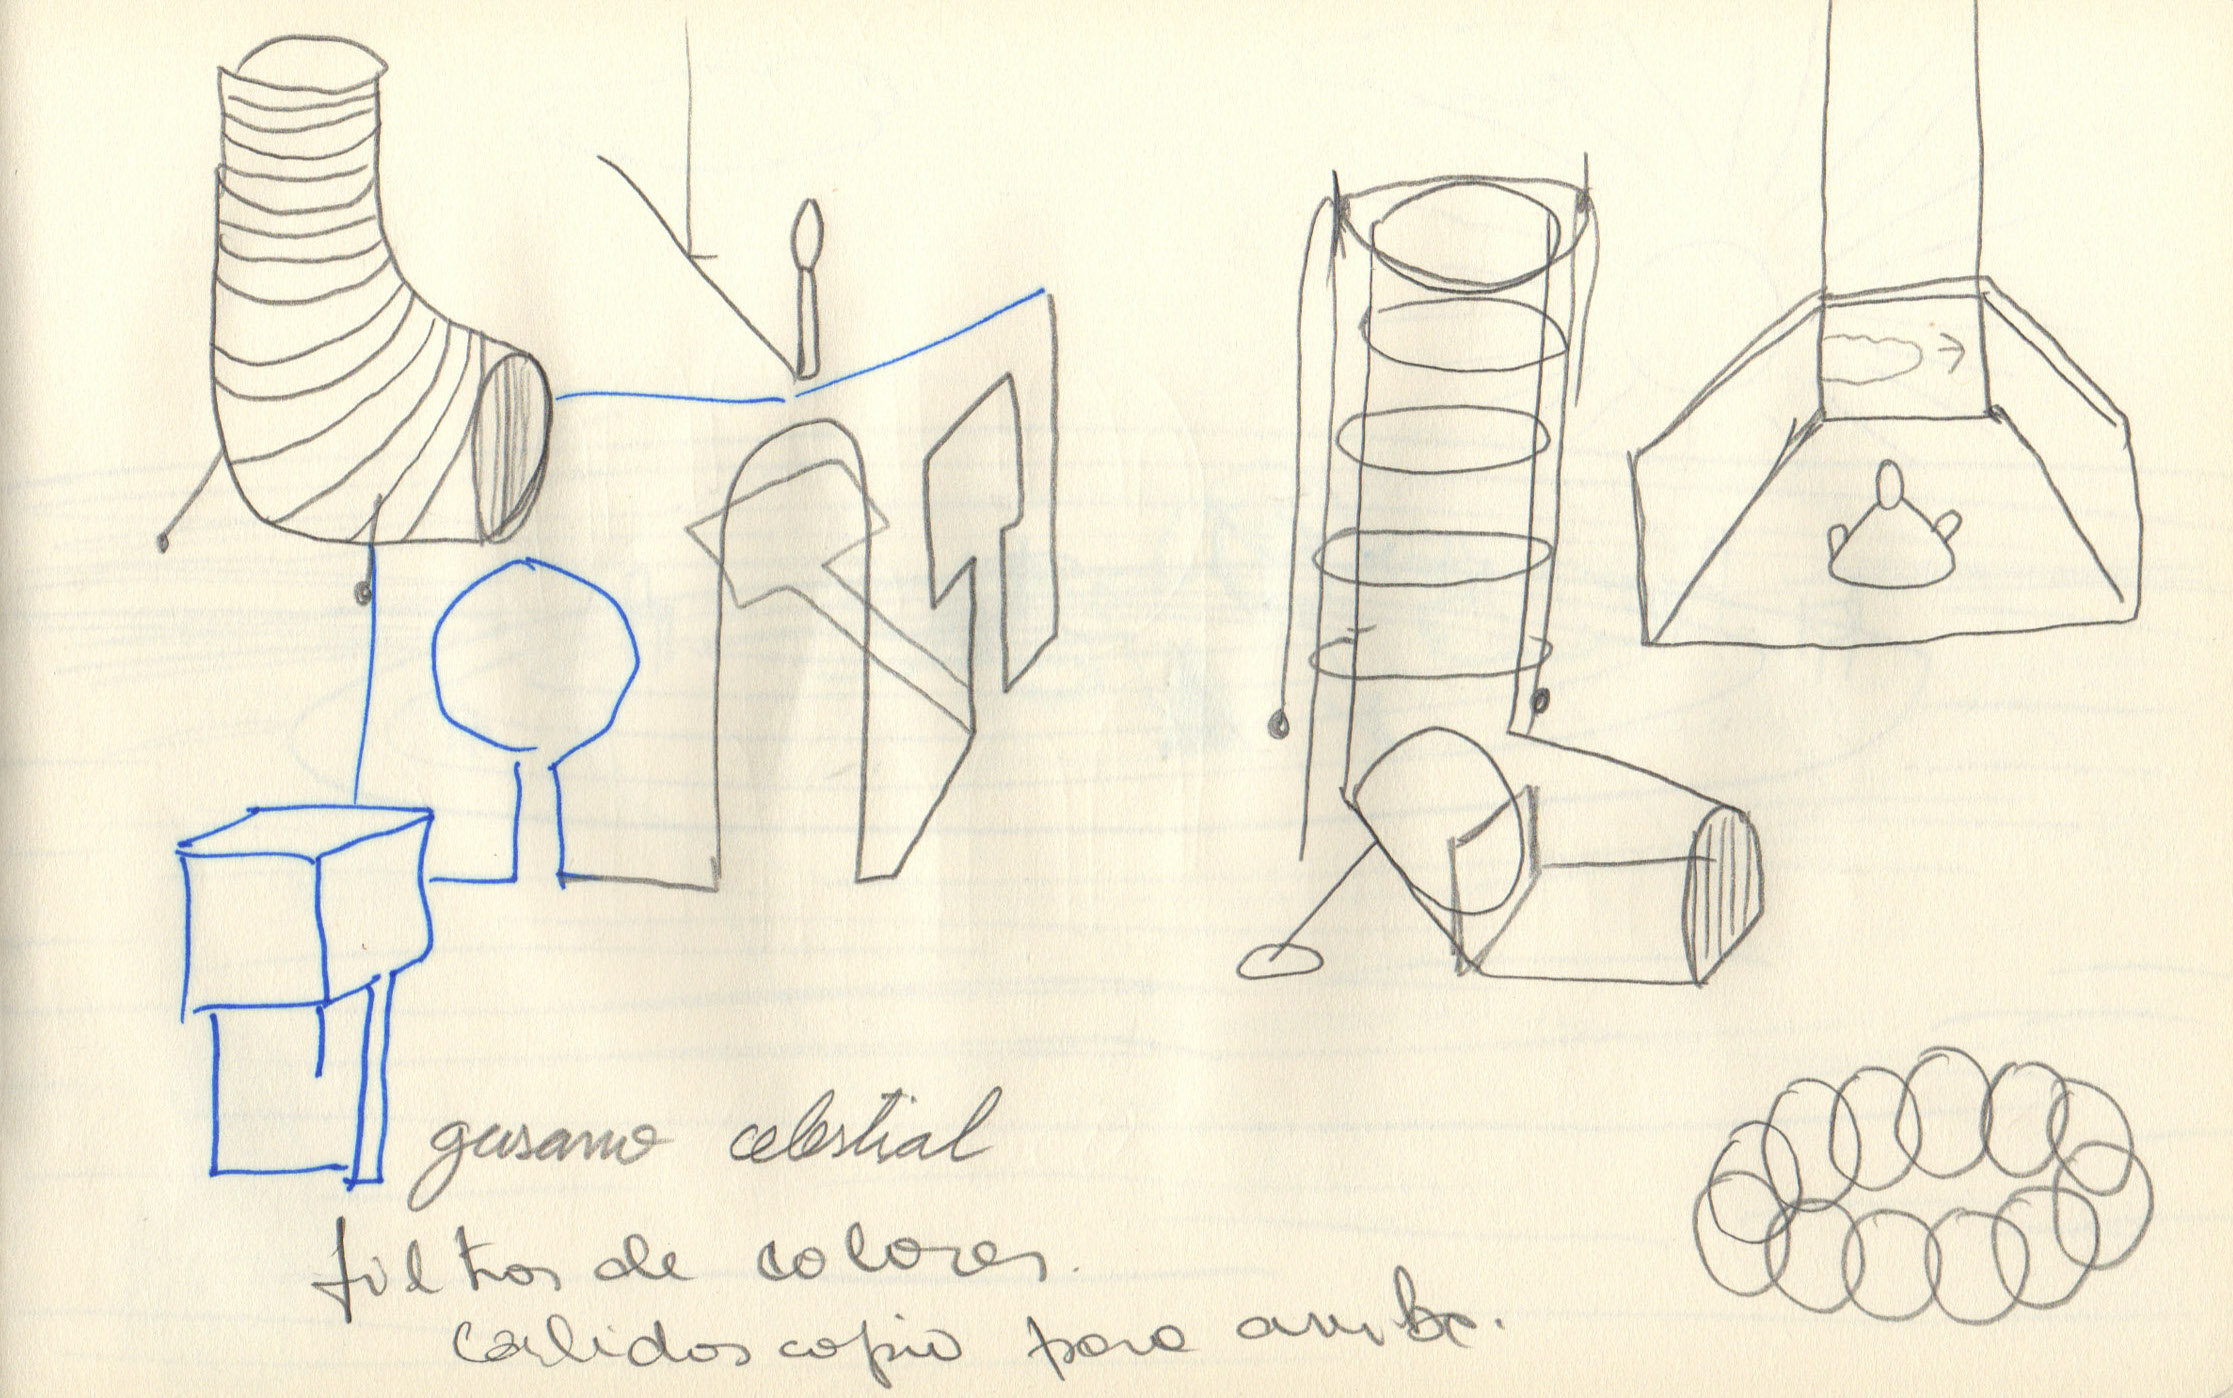 gusano celestial
filtros de colores.
calidoscopio para arriba.